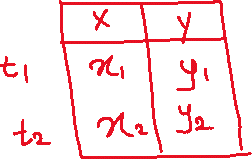 x y
t₁ x₁ y₁
t₂ x₂ y₂